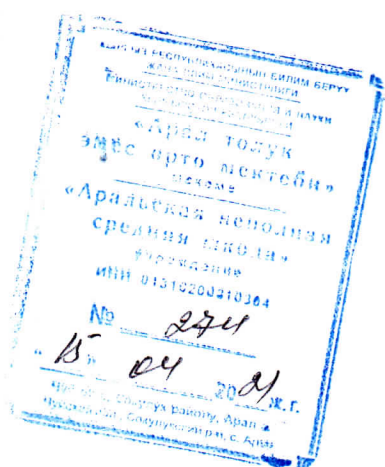 КЫРГЫЗ РЕСПУБЛИКАСЫНЫН БИЛИМ БЕРҮҮ
ЖАНА ИЛИМ МИНИСТРЛИГИ
«Арал толук
эмес орто мектеби»
мекеме
«Аральская неполная
средняя школа»
учреждение
ИНН 01310200210304
№ 274
"15" 04 2021 ж.г.
Чүй обл., Сокулук району, Арал а.
Чуйская обл., Сокулукский р-н, с. Арал